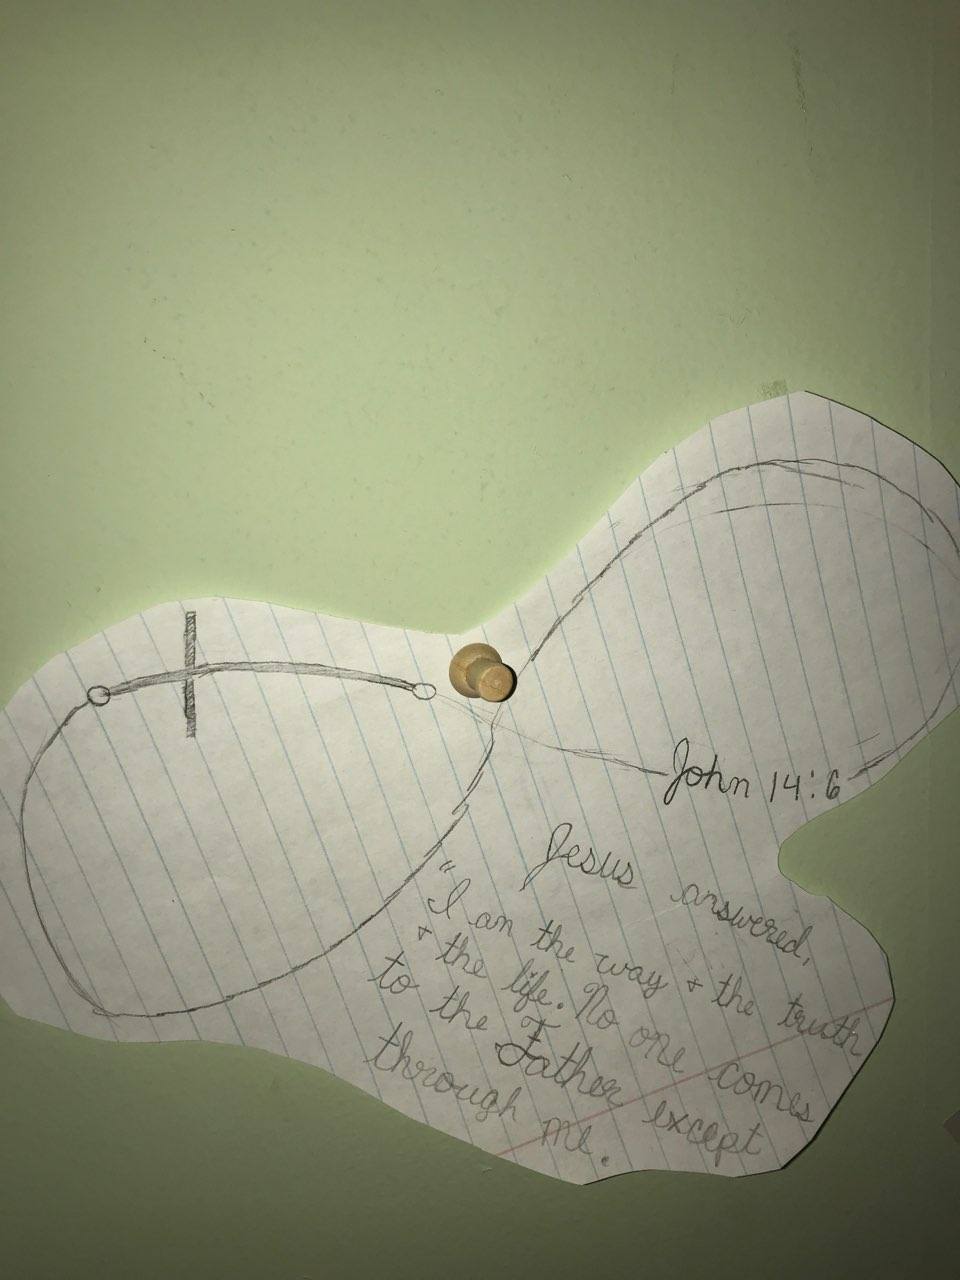 John 14:6
Jesus answered,
"I am the way & the truth
& the life. No one comes
to the Father except
through me.